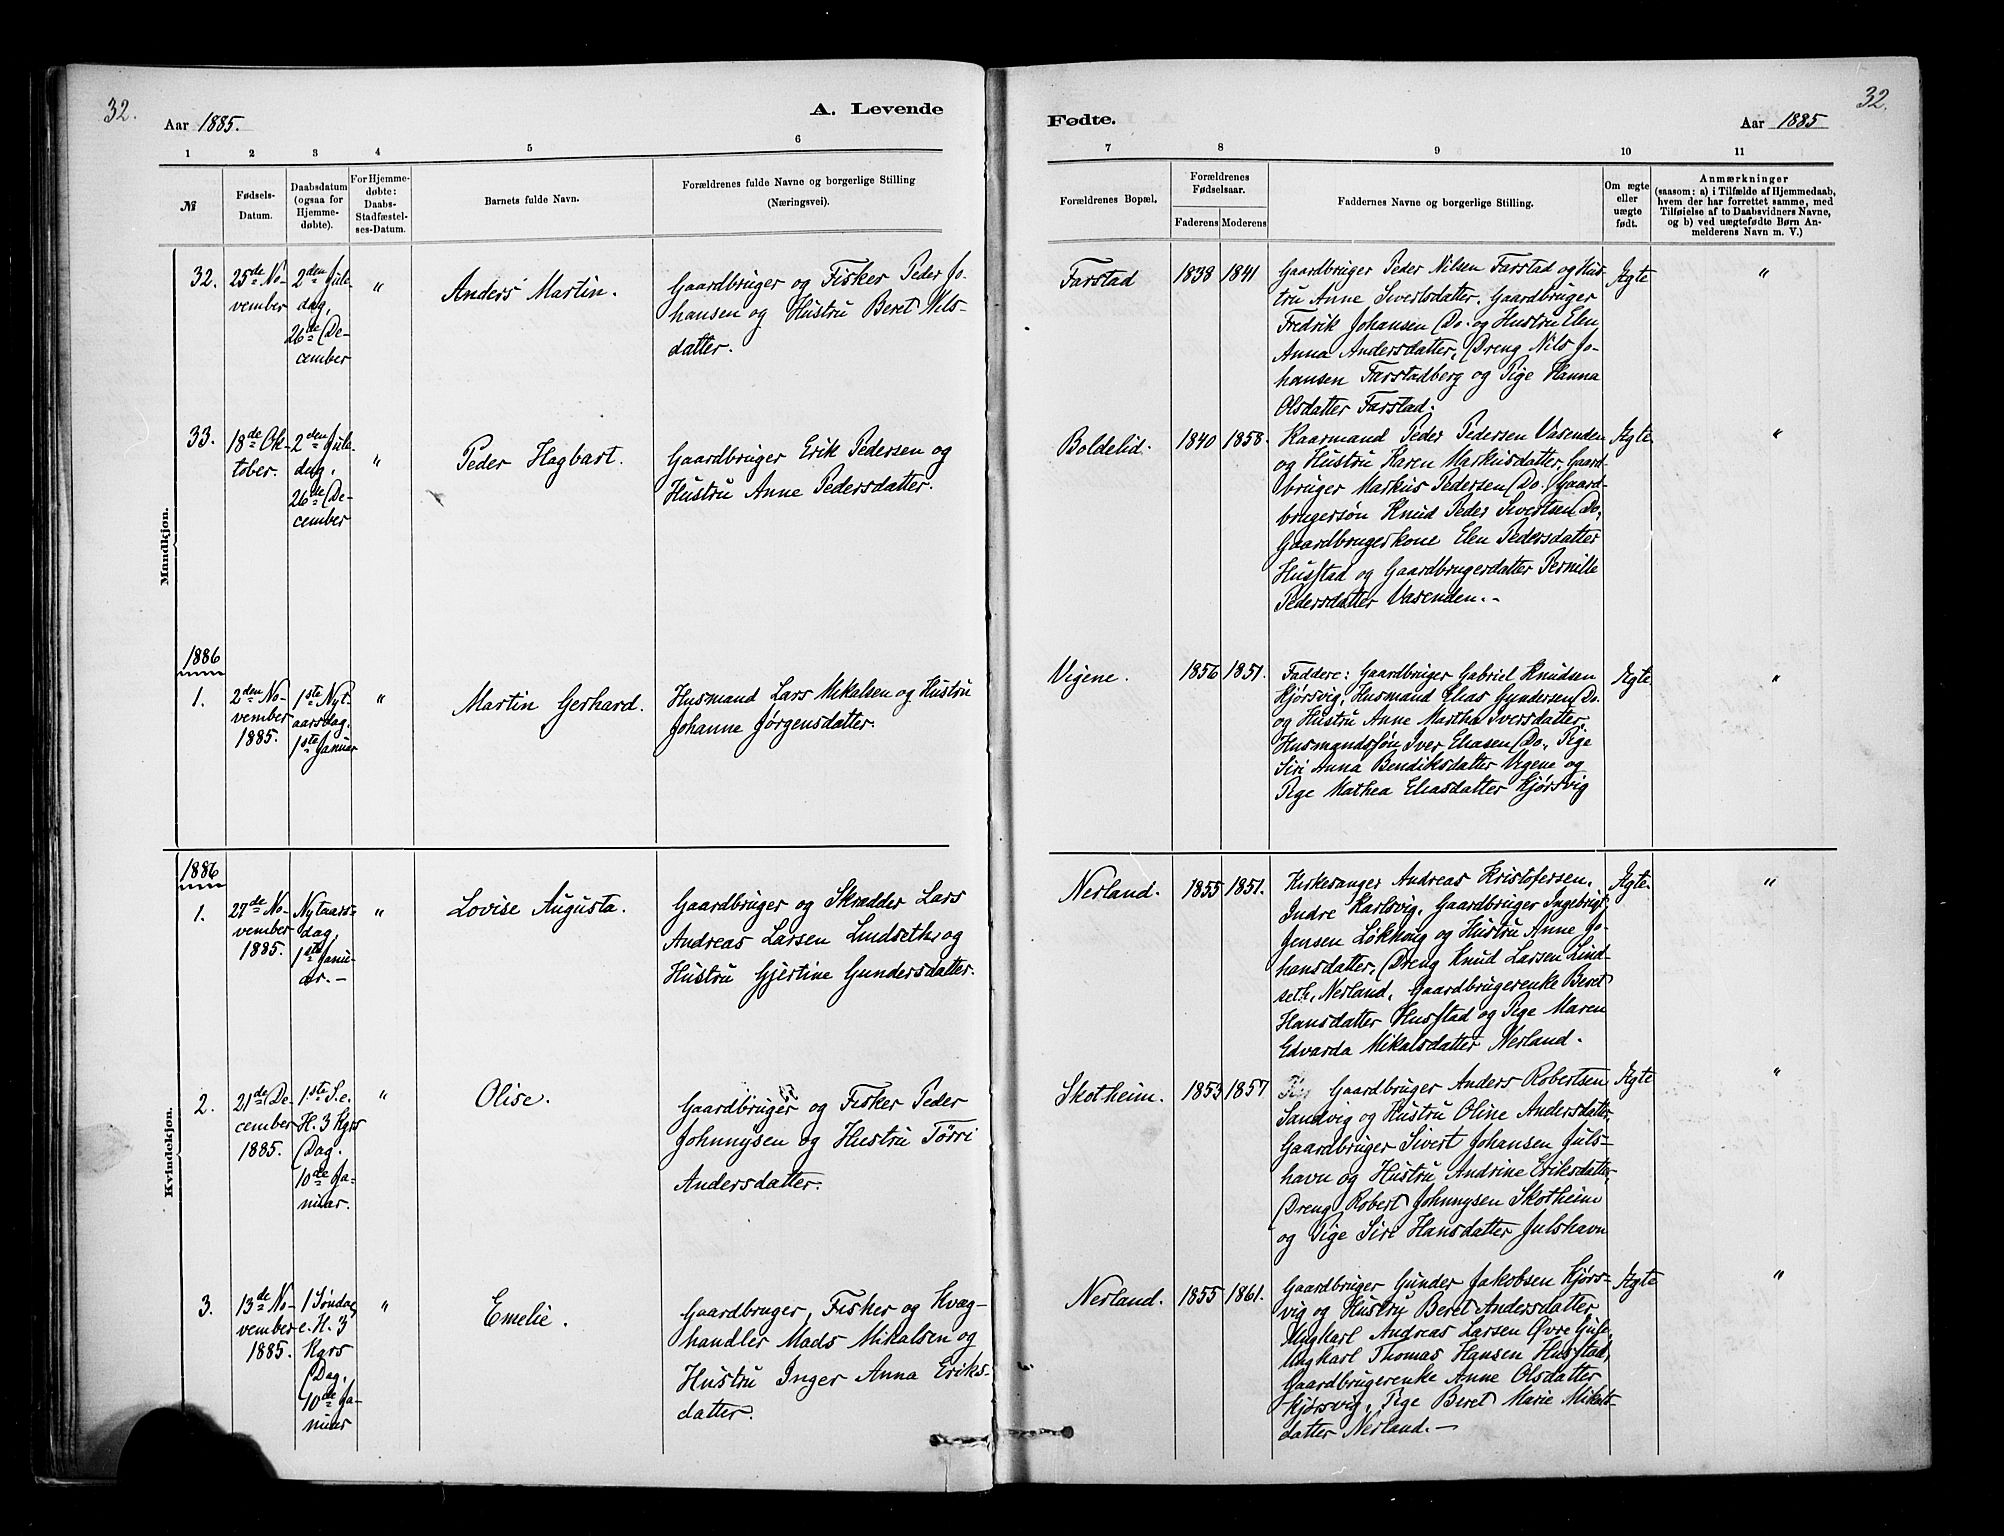 32.
Aar 1885.
A. Levende
1 2 3 4 5 6
№
Fødsels-
Datum.
Daabsdatum
(ogsaa for
Hjemme-
døbte).
For Hjemme-
døbte:
Daabs-
Stadfæstel-
ses-Datum.
Barnets fulde Navn.
Forældrenes fulde Navne og borgerlige Stilling
(Næringsvei).
Mandkjøn.
32.
25de No-
vember
2den Jule-
dag,
26de De-
cember
"
Anders Martin.
Gaardbruger og Fisker Peder Jo-
hansen og Hustru Beret Nils-
datter.
33.
18de Ok-
tober.
2den Jule-
dag,
26de De-
cember
"
Peder Hagbart.
Gaardbruger Erik Pedersen og
Hustru Anne Pedersdatter.
1886
1.
2den No-
vember
1885.
1ste Nyt-
aarsdag,
1ste Januar
"
Martin Gerhard.
Husmand Lars Mikalsen og Hustru
Johanne Jørgensdatter.
Kvindekjøn.
1886
1.
27de No-
vember
1885.
Nytaars-
dag,
1ste Janu-
ar. -
"
Lovise Augusta.
Gaardbruger og Skrædder Lars
Andreas Larsen Lindseth, og
Hustru Gjertine Gundersdatter.
2.
21de De-
cember
1885.
1ste S. e.
H. 3 Kgrs
Dag.
10de Ja-
nuar.
"
Olise.
Gaardbruger og Fisker Peder
Johnnysen og Hustru Törri
Andersdatter.
3.
13de No-
vember
1885.
1 Søndag
e. H. 3
Kgrs
Dag,
10de Ja-
nuar
"
Emelie.
Gaardbruger, Fisker og Kvæg-
handler Mads Mikalsen og
Hustru Inger Anna Eriks-
datter.
Fødte.
Aar 1885
32.
7 8 9 10 11
Forældrenes Bopæl.
Forældrenes
Fødselsaar.
Faderens Moderens
Faddernes Navne og borgerlige Stilling.
Om ægte
eller
uægte
født.
Anmærkninger
(saasom: a) i Tilfælde af Hjemmedaab,
hvem der har forrettet samme, med
Tilføielse af to Daabsvidners Navne,
og b) ved uægtefødte Børn An-
melderens Navn m. V.)
Farstad
1838 1841
Gaardbruger Peder Nilsen Farstad og Hus-
tru Anne Sivertsdatter. Gaardbruger
Fredrik Johansen Do. og Hustru Elen
Anna Andersdatter, Dreng Nils Jo-
hansen Farstadberg og Pige Hanna
Olsdatter Farstad.
Ægte
"
Boldelid.
1840 1858.
Kaarmand Peder Pedersen Vasenden
og Hustru Karen Markusdatter, Gaard-
bruger Markus Pedersen Do. Gaard-
brugersøn Knud Peder Sivertsen Do,
Gaardbrugerkone Elen Pedersdatter
Husstad og Gaardbrugerdatter Pernille
Pedersdatter Vasenden. -
Ægte
"
Vigene.
1856 1851.
Faddere: Gaardbruger Gabriel Knudsen
Kjørsvig, Husmand Elias Gundersen Do.
og Hustru Anne Martha Iversdatter,
Husmandssøn Iver Eliasen Do, Pige
Siri Anna Bendiksdatter Vigene og
Pige Mathea Eliasdatter Kjørsvig
Ægte
"
Nerland.
1855 1851.
Kirkesanger Andreas Kristofersen,
Indre Karlsvig, Gaardbruger Ingebrigt
Jensen Løkhoug og Hustru Anne Jo-
hansdatter, Dreng Knud Larsen Lind-
seth, Nerland, Gaardbrugerenke Beret
Hansdatter Husstad og Pige Maren
Edvarda Mikalsdatter Nerland.
Ægte.
"
Skotheim.
1853 1857
Gaardbruger Anders Robertsen
Sandvig og Hustru Oline Andersdatter,
Gaardbruger Sivert Johansen Juls-
havn og Hustru Andrine Eriksdatter,
Dreng Robert Johnnysen Skotheim
og Pige Siri Hansdatter Julshavn
Ægte
"
Nerland.
1855 1861.
Gaardbruger Gunder Jakobsen Kjørs-
vig og Hustru Beret Andersdatter
Ungkarl Andreas Larsen Øvre Gule,
Ungkarl Thomas Hansen Husstad,
Gaardbrugerenke Anne Olsdatter
Kjørsvig, Pige Beret Marie Mikals-
datter Nerland. -
Ægte
"